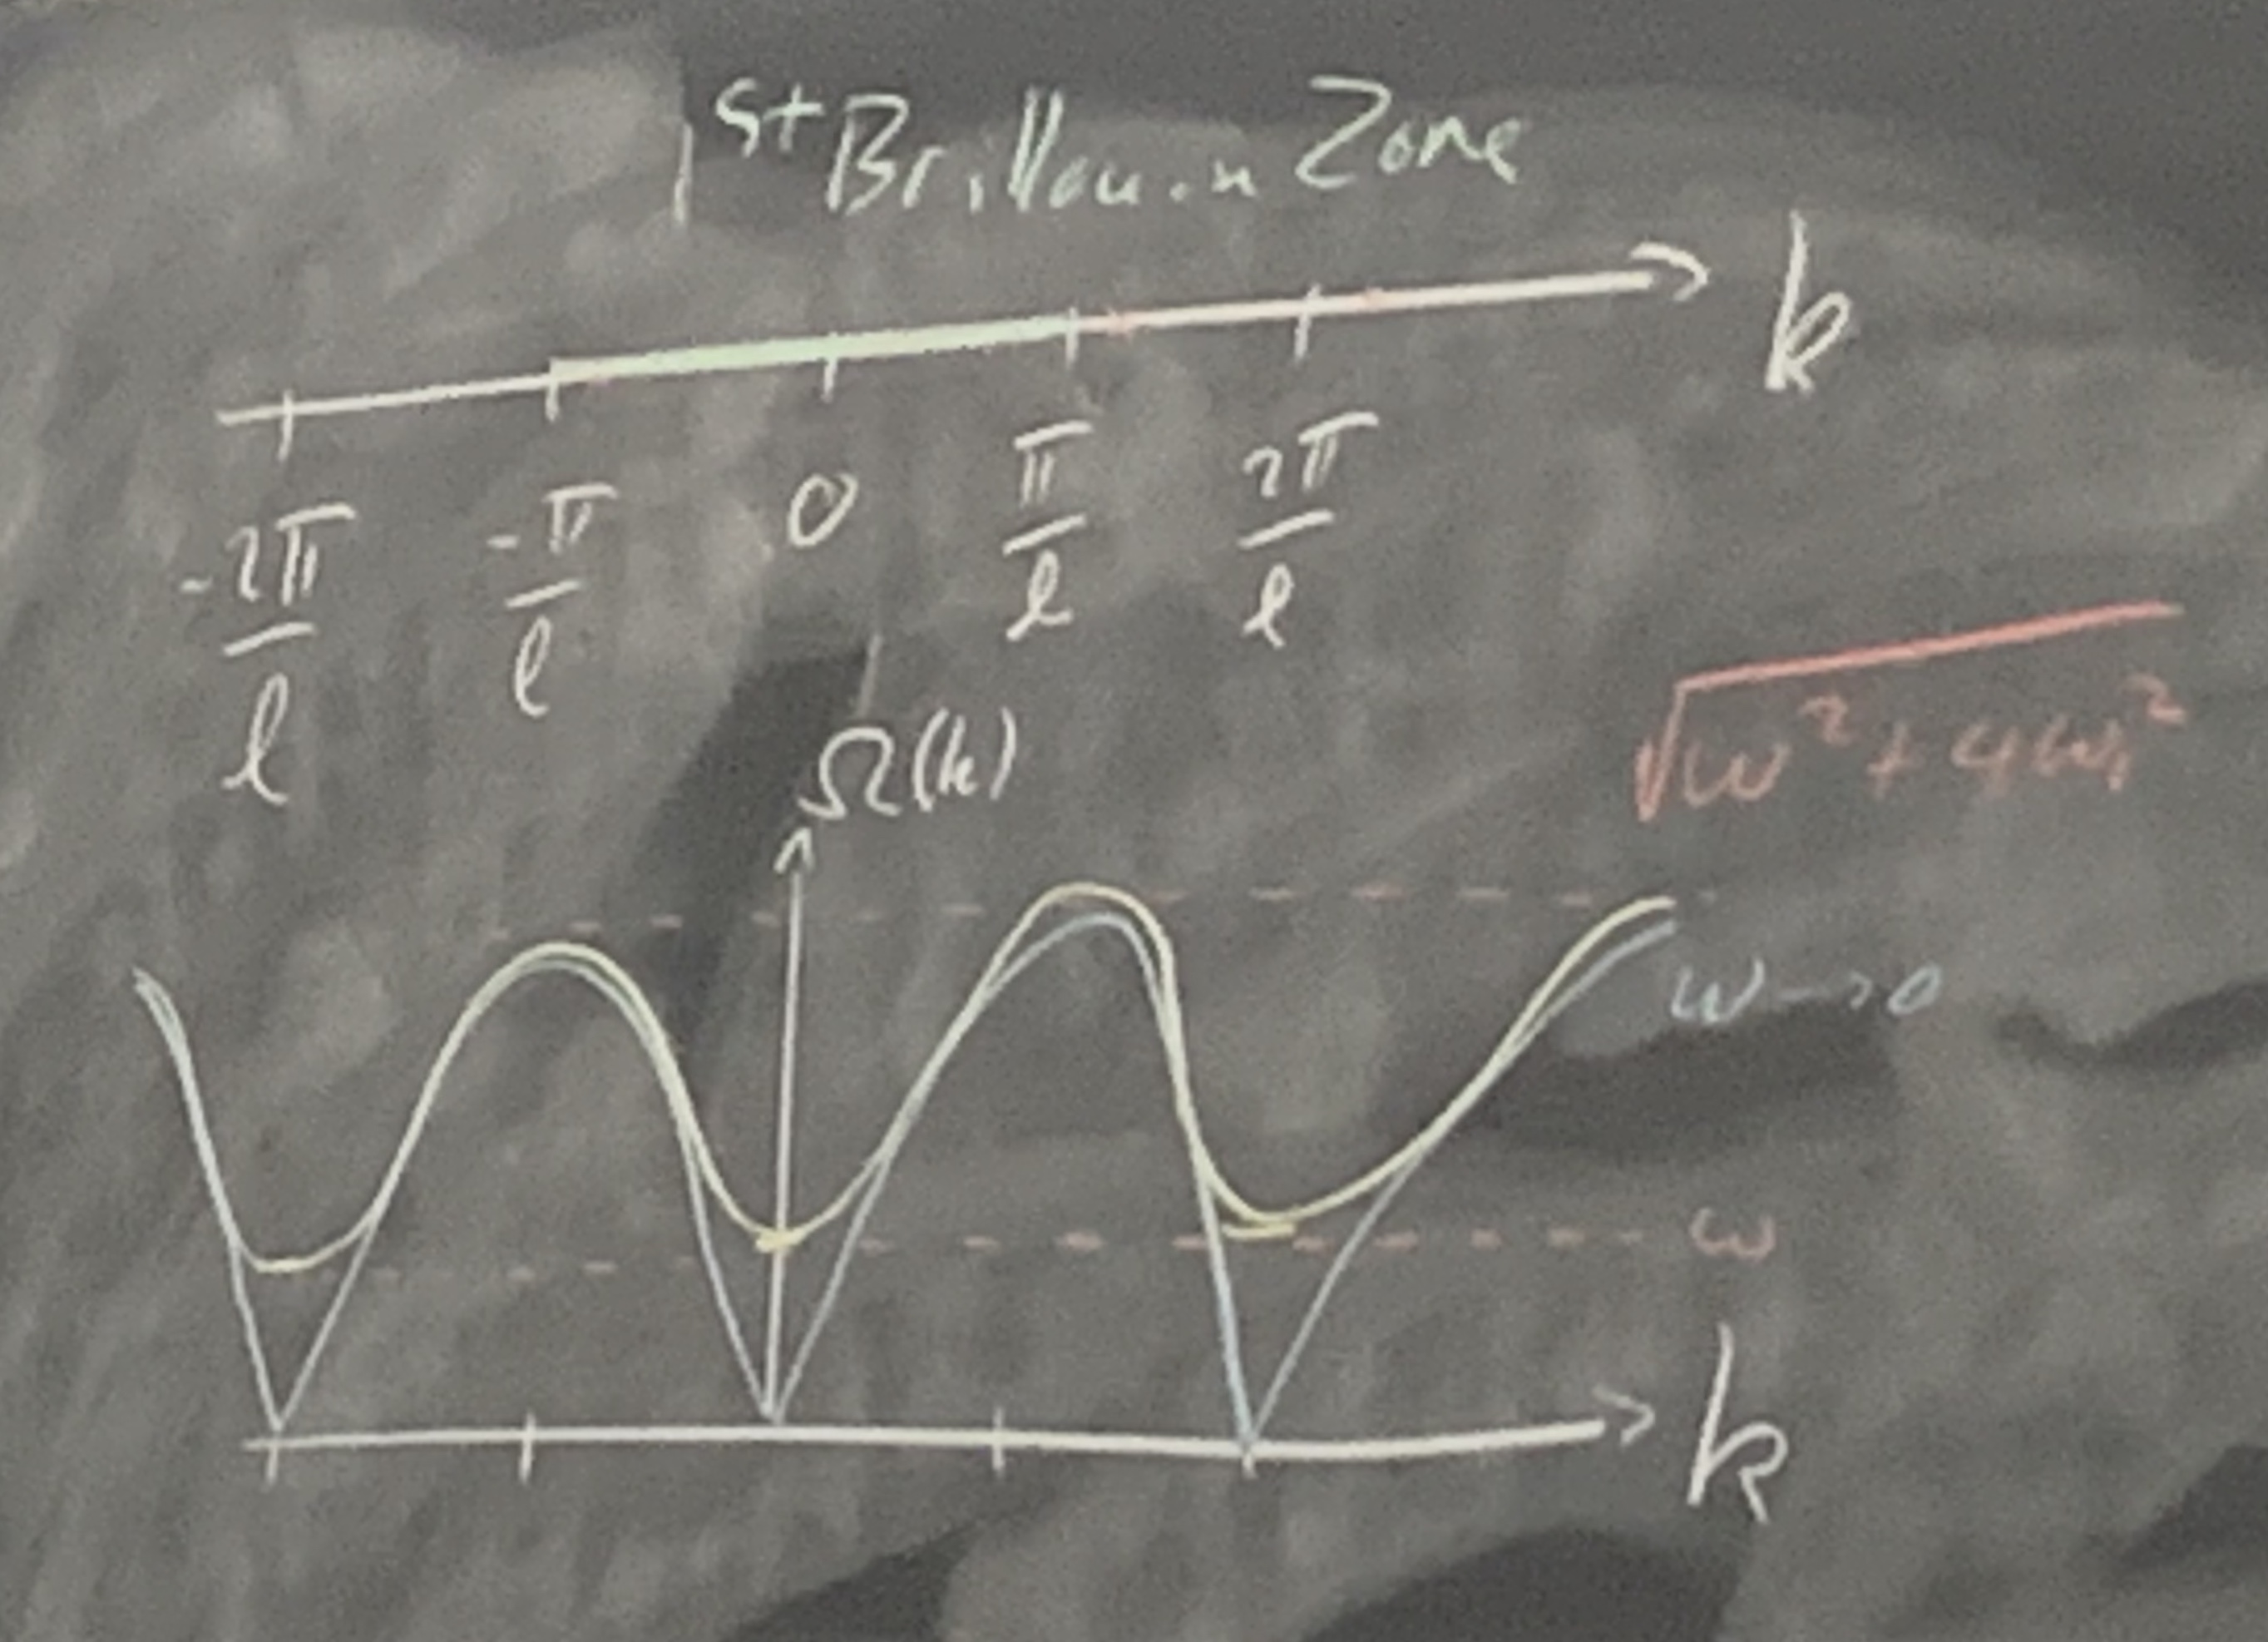 1st Brillouin Zone
k
-2π/l -π/l 0 π/l 2π/l
√(ω² + 4ω₁²)
Ω(k)
ω→0
ω
k